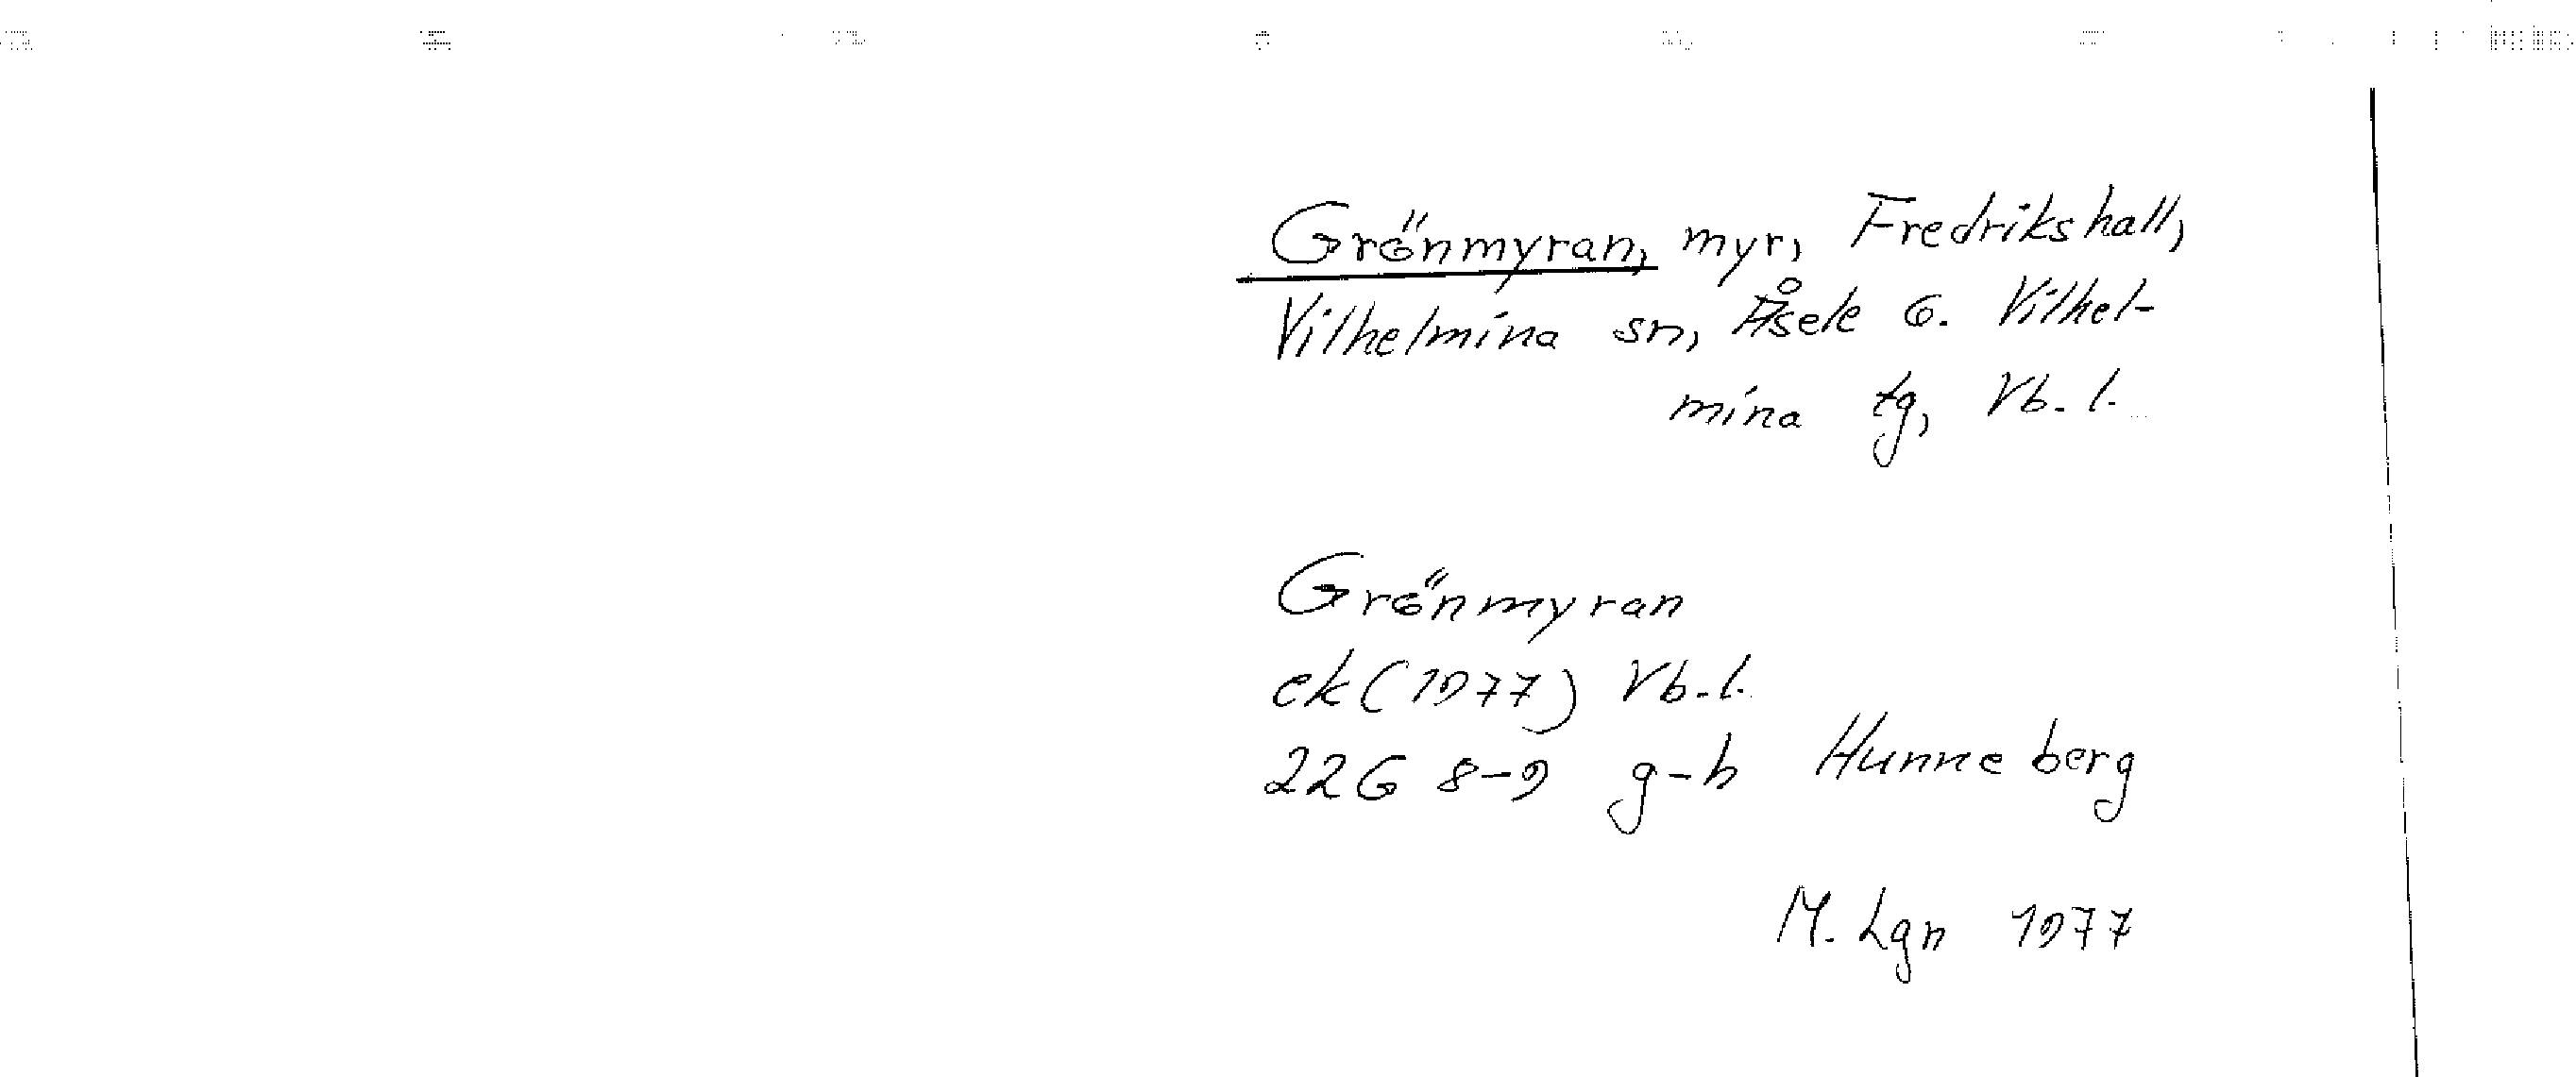 Grönmyran, myr, Fredrikshall,
Vilhelmina sn, Åsele o. Vilhel-
mina tg, Vb. l.
Grönmyran
ek (1977) Vb. l.
22G 8-9 g-h Hunneberg
M. Lgn 1977